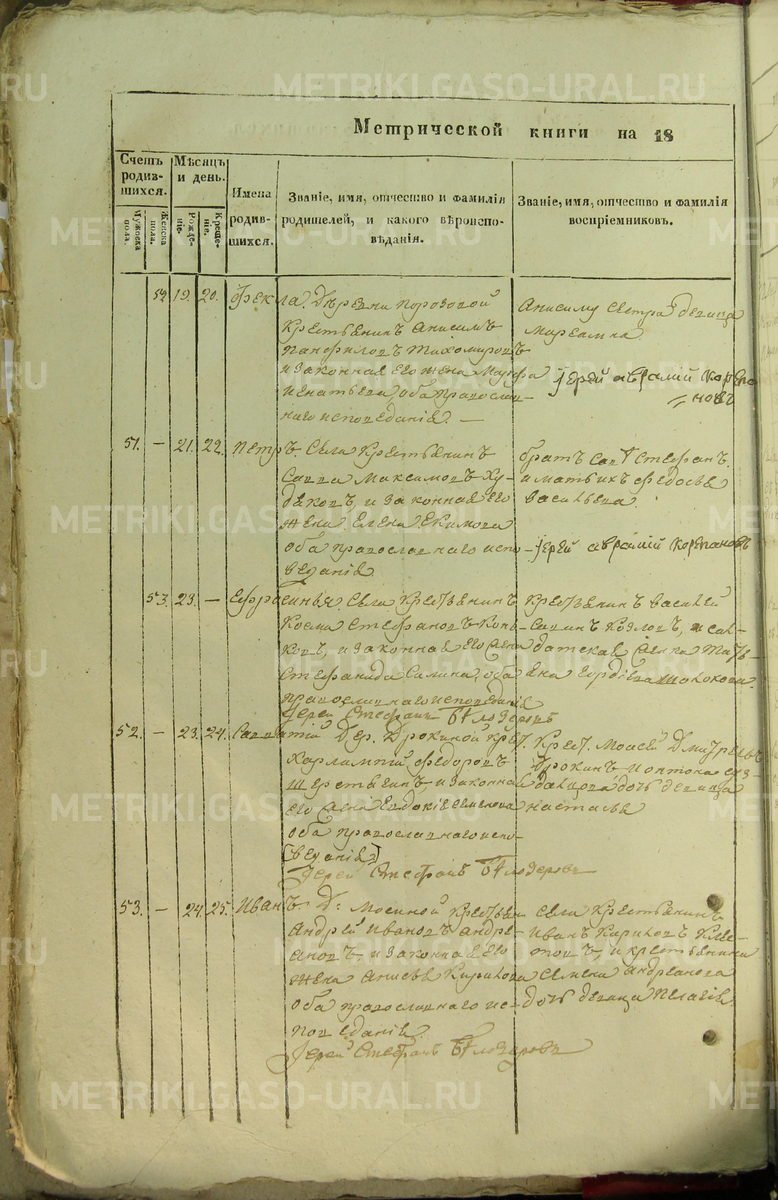 METRIKI.GASO-URAL.RU
Метрической книги на 18
Счетъ родив-шихся.
Мужеска пола.
Женска пола.
Мѣсяцъ и день.
Рожде-ніе.
Креще-ніе.
Имена родив-шихся.
Званіе, имя, отчество и фамилія родителей, и какого вѣроиспо-вѣданія.
Званіе, имя, отчество и фамилія воспріемниковъ.
19. 20. Фекла. Деревни
Крестьянинъ Анисимъ
Панфиловъ Тихомировъ
и законная его жена Марфа
Игнатьева, оба православ-
наго исповеданія. —
Анисиму сестра девица
Іерей Аврамій Корепа
новъ
51. — 21. 22. Петръ. Села Крестьянинъ
Савва Максимовъ Ху-
дековъ, и законная его
жена Елена Екимова
оба православнаго испо-
веданія
братъ Стефанъ.
и мать ихъ Федосья
Васильева
Іерей Аврамій Корепановъ
53. 23. — Ефросинья Села Крестьянинъ
Козма Стефановъ
и законная его жена
Стефанида Силина, оба
православнаго исповеданія
Іерей Стефанъ
Крестьянинъ Василей
Саввинъ Козловъ, и сол-
датская женка Татья-
на Гордѣева
52. — 23. 24. Савватій Дер. Дрокиной Крест.
Харлампій Федоровъ
Шерстнинъ и законная
его жена Евдокія Семенова
оба православнаго испо-
[веданія]
Іерей Стефанъ
Крест. Моисей Дмитріевъ
Дрокинъ
дочь девица
Настасья
53. — 24 25. Иванъ Д: Мосиной Крестьян
Андрей Ивановъ Андре-
ановъ, и законная его
жена Анисья Кирикова
оба православнаго ис-
поведанія.
Іерей Стефанъ
Села Крестьянинъ
Иванъ Кириковъ
и крестьянина
Семена Андреанова
дочь девица Пелагія.